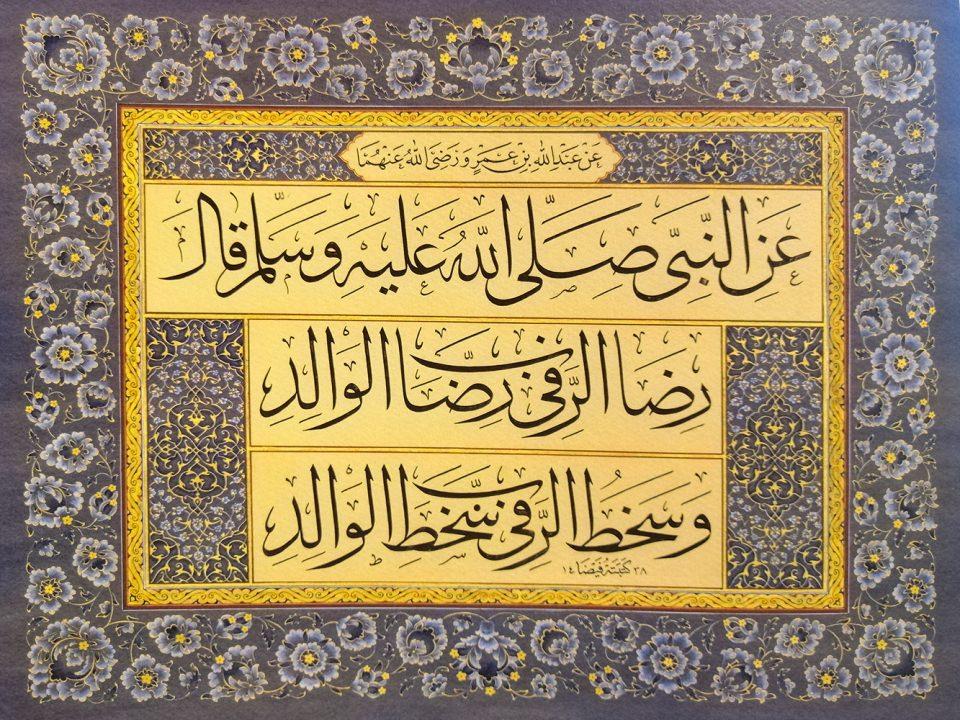 عَنْ عَبْدِ اللهِ بْنِ عَمْرٍو رَضِيَ اللهُ عَنْهُمَا
عَنِ النَّبِيِّ صَلَّى اللهُ عَلَيْهِ وَسَلَّمَ قَالَ
رِضَا الرَّبِّ فِي رِضَا الْوَالِدِ
وَسَخَطُ الرَّبِّ فِي سَخَطِ الْوَالِدِ
٣٨ كتبه فيضا ١٤